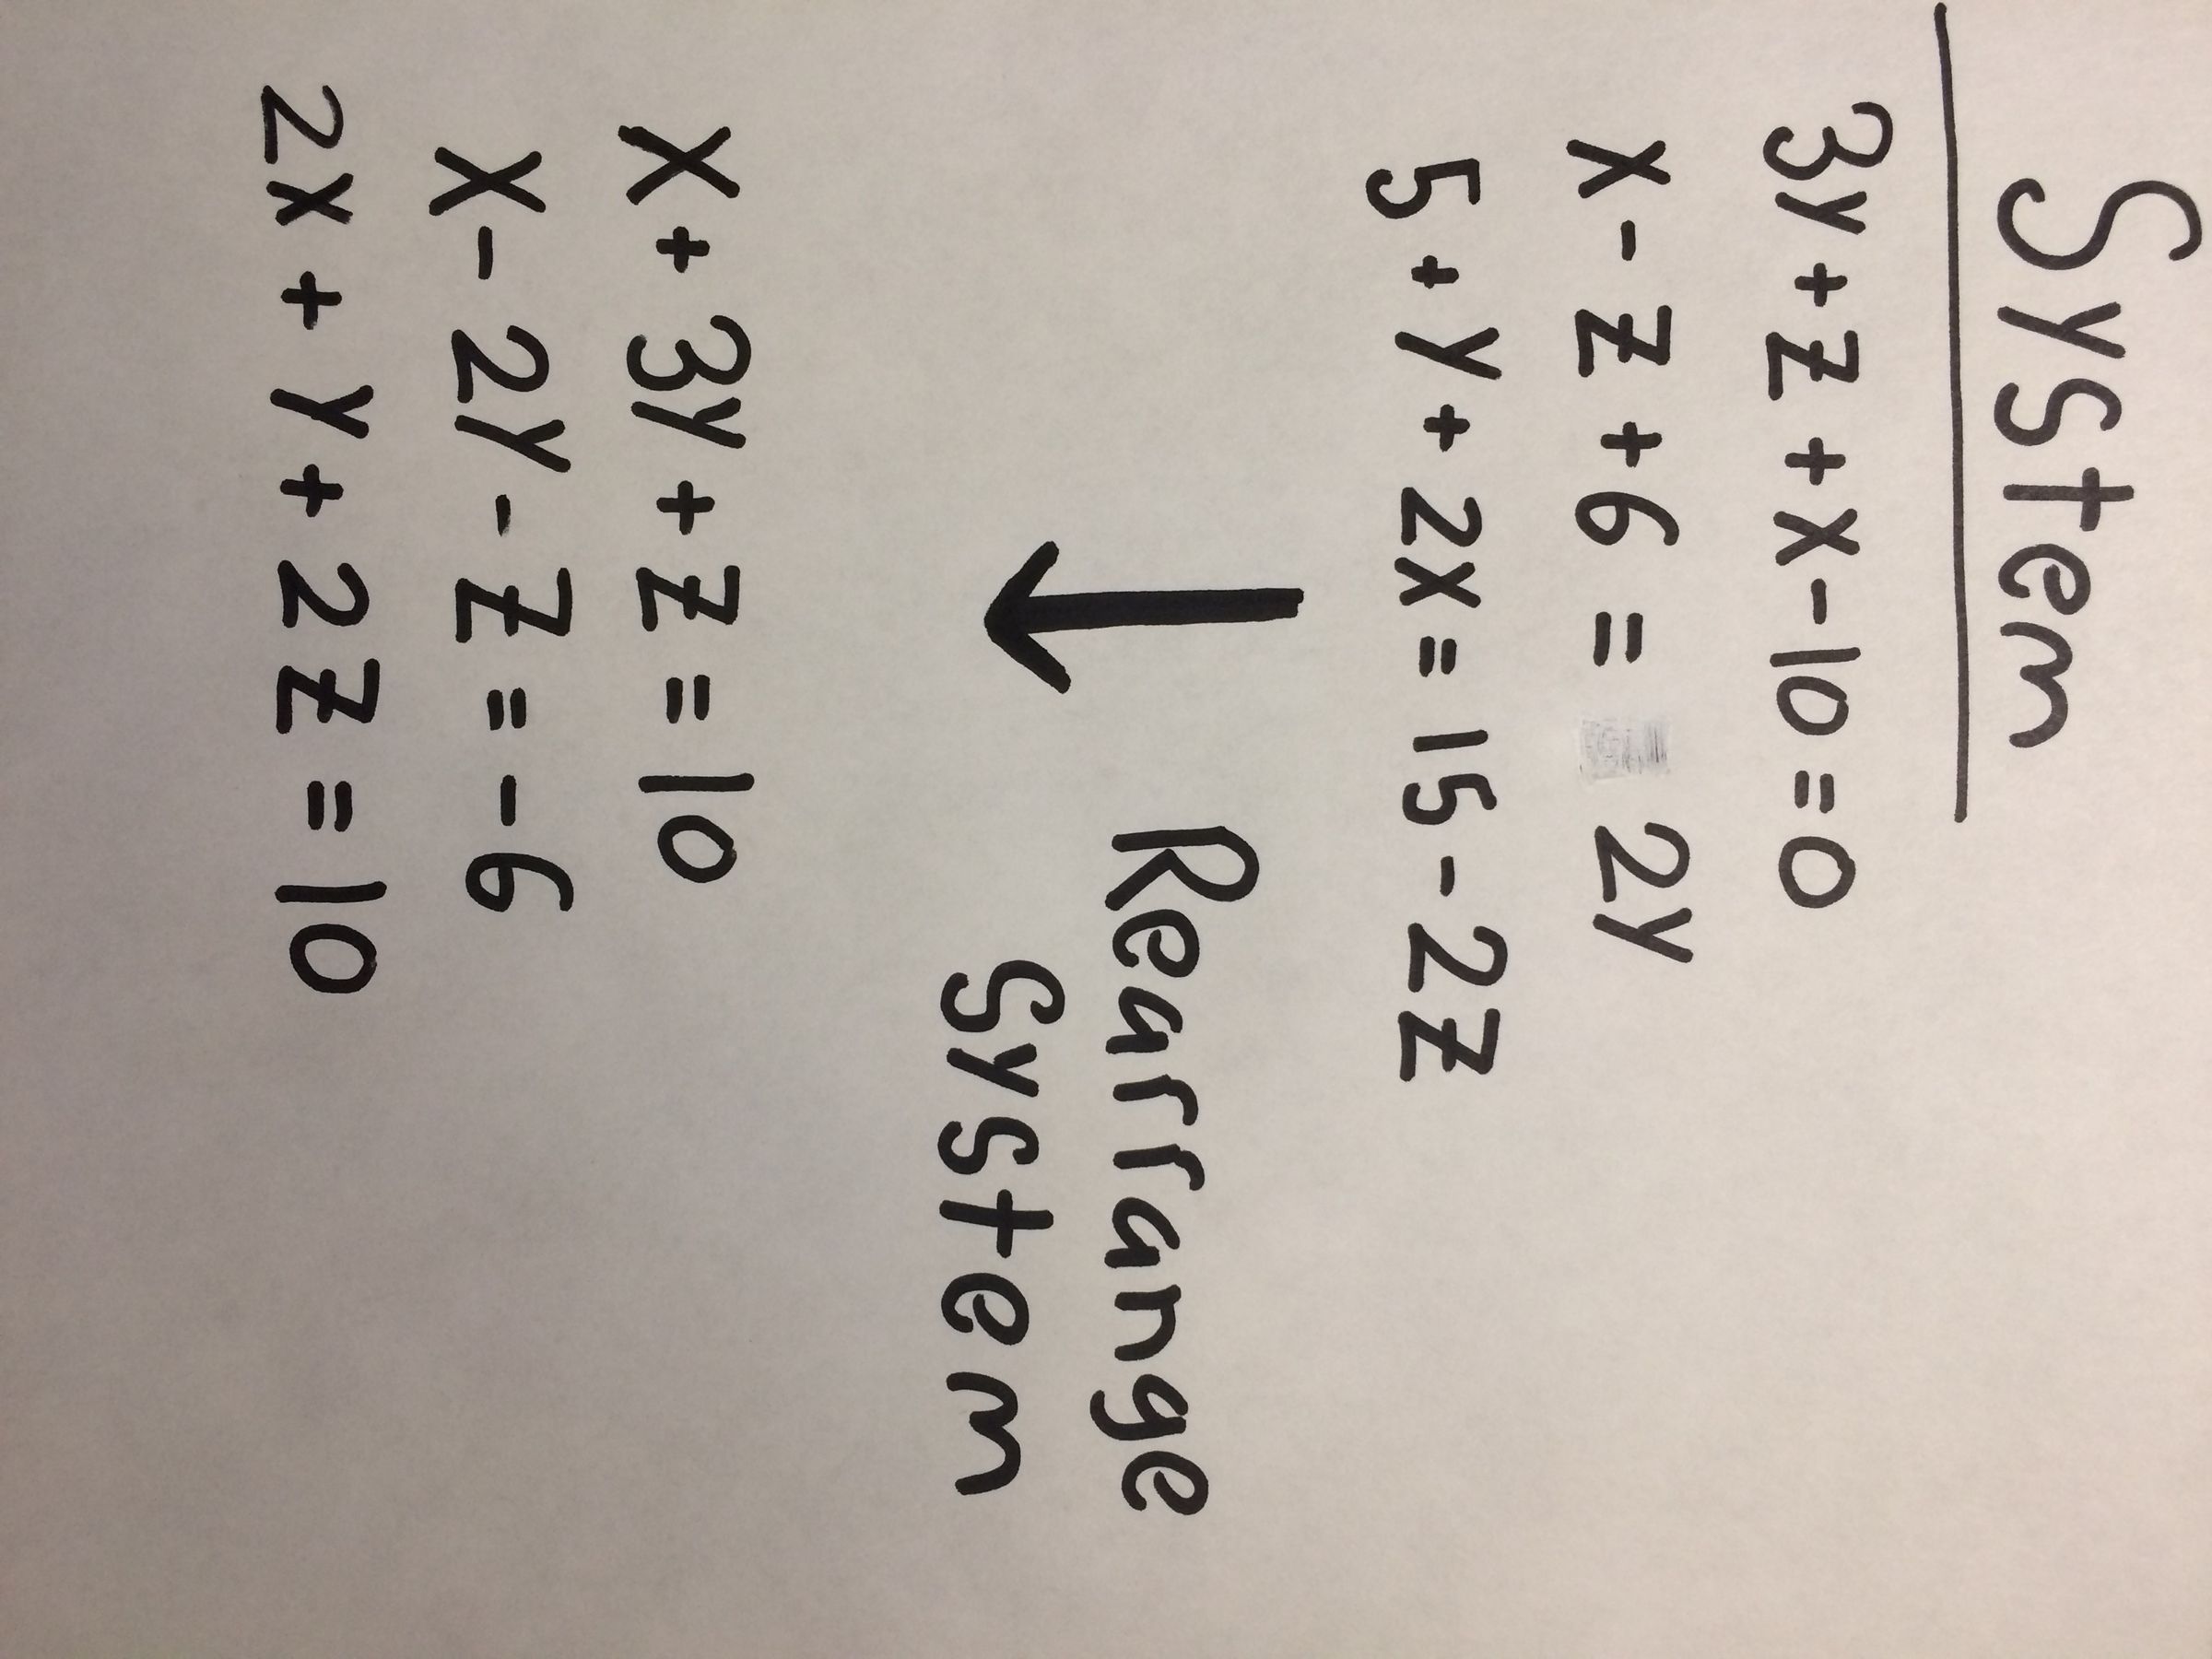 System
3y + z + x - 10 = 0
x - z + 6 = 2y
5 + y + 2x = 15 - 2z
Rearrange
System
x + 3y + z = 10
x - 2y - z = -6
2x + y + 2z = 10